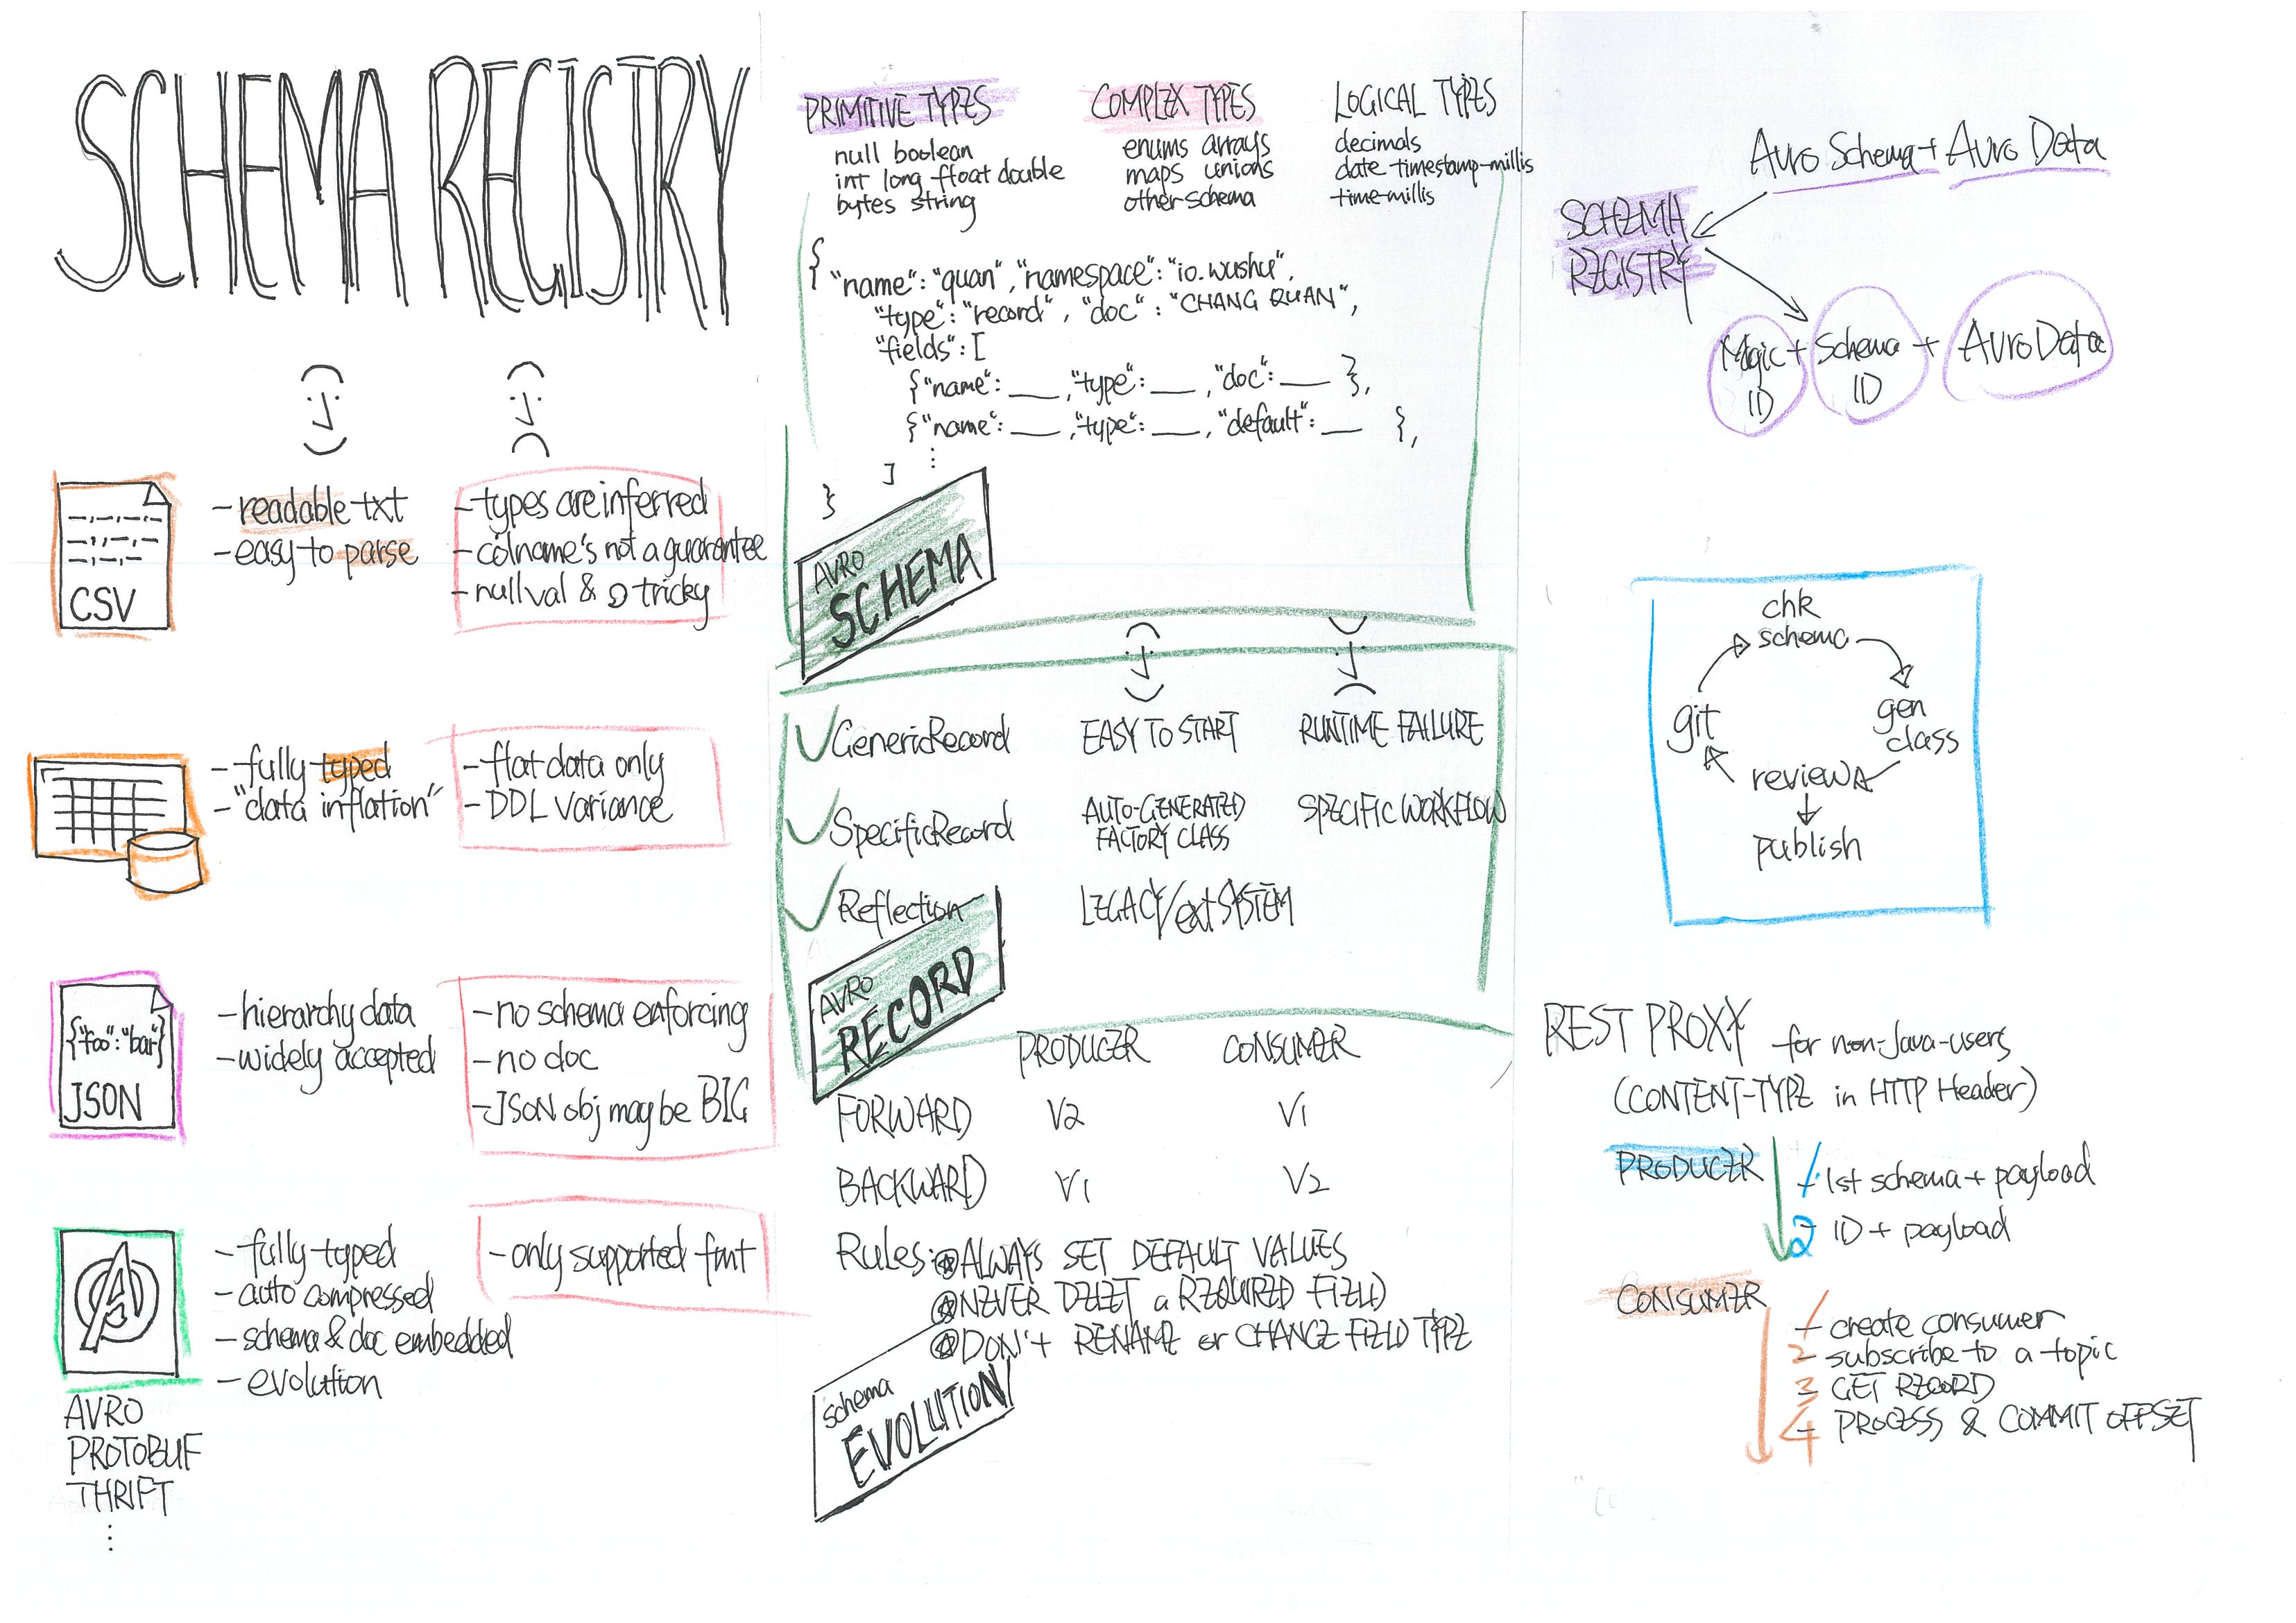 SCHEMA REGISTRY
CSV
- readable txt
- easy to parse
- types are inferred
- colname's not a guarantee
- null val & tricky
- fully typed
- "data inflation"
- flat data only
- DDL variance
{"foo":"bar"}
JSON
- hierarchy data
- widely accepted
- no schema enforcing
- no doc
- JSON obj may be BIG
- fully typed
- auto compressed
- schema & doc embedded
- evolution
- only supported fmt
AVRO
PROTOBUF
THRIFT
⋮
PRIMITIVE TYPES
null boolean
int long float double
bytes string
COMPLEX TYPES
enums arrays
maps unions
other schema
LOGICAL TYPES
decimals
date timestamp-millis
time-millis
{
"name": "quan", "namespace": "io.wushu",
"type": "record", "doc": "CHANG QUAN",
"fields": [
{"name": ___, "type": ___, "doc": ___ },
{"name": ___, "type": ___, "default": ___ },
⋮
]
}
AVRO
SCHEMA
GenericRecord EASY TO START RUNTIME FAILURE
SpecificRecord AUTO-GENERATED FACTORY CLASS SPECIFIC WORKFLOW
Reflection LEGACY/ext SYSTEM
AVRO
RECORD
PRODUCER CONSUMER
FORWARD V2 V1
BACKWARD V1 V2
Rules: ALWAYS SET DEFAULT VALUES
NEVER DELET a REQUIRED FIELD
DON't RENAME or CHANGE FIELD TYPE
schema
EVOLUTION
Avro Schema + Avro Data
SCHEMA
REGISTRY
Magic ID + Schema ID + Avro Data
chk
schema
gen
class
review
git
publish
REST PROXY for non-Java-users
(CONTENT-TYPE in HTTP Header)
PRODUCER
1 - 1st schema + payload
2 - ID + payload
CONSUMER
1 - create consumer
2 - subscribe to a topic
3 - GET RECORD
4 - PROCESS & COMMIT OFFSET